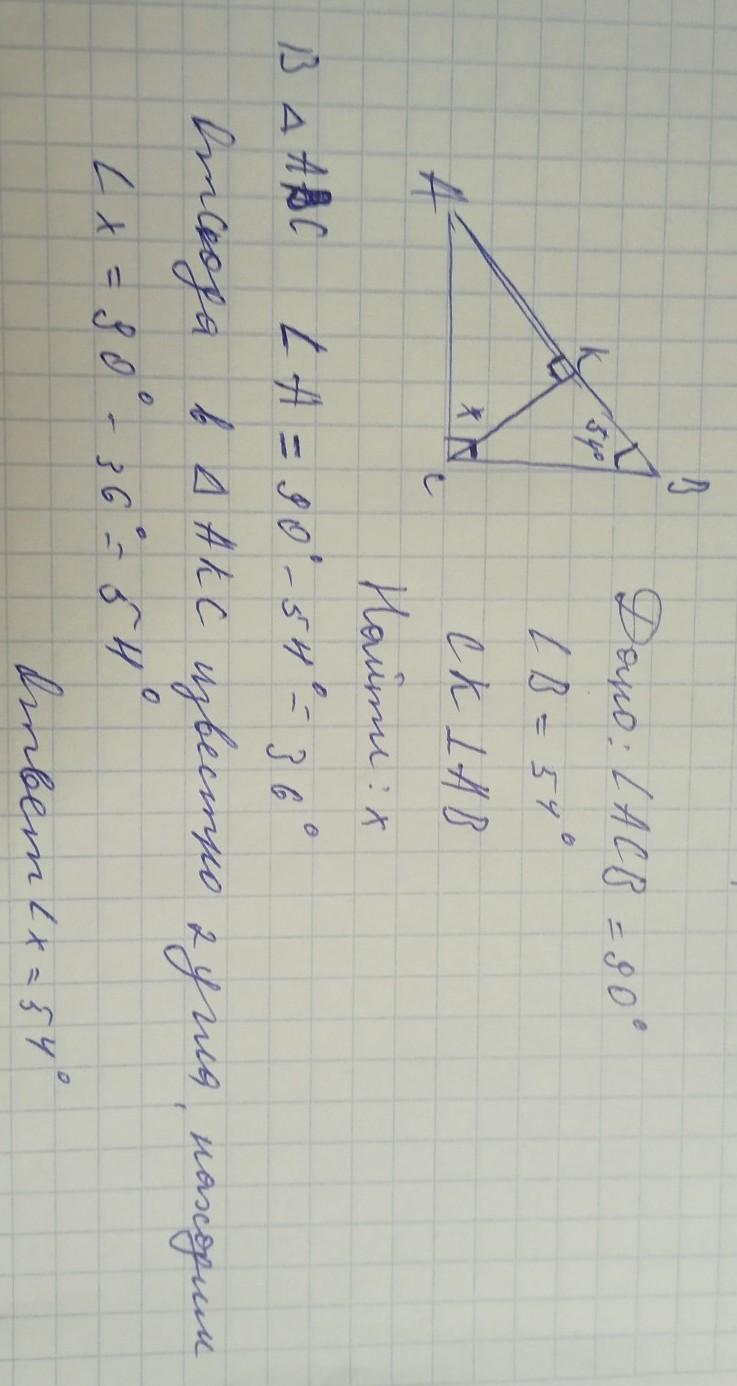 A
K
54°
B
x
C
Дано: ∠ACB = 90°
∠B = 54°
CK⊥AB
Найти: x
В △ ABC ∠A = 90° - 54° = 36°
Отсюда в △ AKC известно 2 угла, находим
∠x = 90° - 36° = 54°
Ответ ∠x = 54°